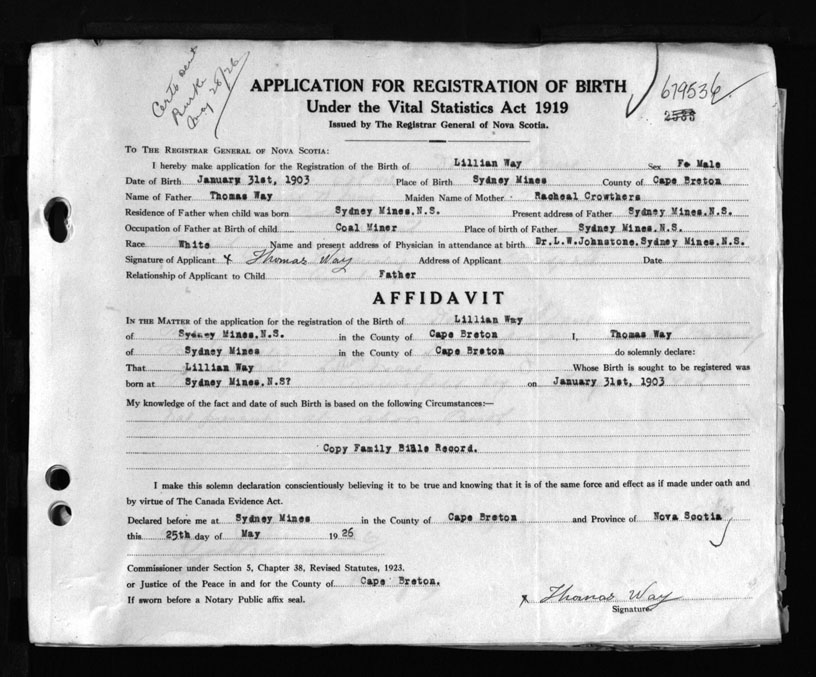 Certs sent
Aug 28/26
APPLICATION FOR REGISTRATION OF BIRTH
Under the Vital Statistics Act 1919
Issued by The Registrar General of Nova Scotia.
679536
2533
TO THE REGISTRAR GENERAL OF NOVA SCOTIA:
I hereby make application for the Registration of the Birth of Lillian Way Sex Fe Male
Date of Birth January 31st, 1903 Place of Birth Sydney Mines County of Cape Breton
Name of Father Thomas Way Maiden Name of Mother Racheal Crowthers
Residence of Father when child was born Sydney Mines.N.S. Present address of Father Sydney Mines.N.S.
Occupation of Father at Birth of child Coal Miner Place of birth of Father Sydney Mines.N.S.
Race White Name and present address of Physician in attendance at birth Dr.L.W.Johnstone.Sydney Mines.N.S.
Signature of Applicant x Thomas Way Address of Applicant Date
Relationship of Applicant to Child Father
AFFIDAVIT
IN THE MATTER of the application for the registration of the Birth of Lillian Way
of Sydney Mines.N.S. in the County of Cape Breton I, Thomas Way
of Sydney Mines in the County of Cape Breton do solemnly declare:
That Lillian Way Whose Birth is sought to be registered was
born at Sydney Mines.N.S? on January 31st, 1903
My knowledge of the fact and date of such Birth is based on the following Circumstances:—
Copy Family Bible Record.
I make this solemn declaration conscientiously believing it to be true and knowing that it is of the same force and effect as if made under oath and
by virtue of The Canada Evidence Act.
Declared before me at Sydney Mines in the County of Cape Breton and Province of Nova Scotia
this 25th day of May 1926
Commissioner under Section 5, Chapter 38, Revised Statutes, 1923.
or Justice of the Peace in and for the County of Cape Breton.
If sworn before a Notary Public affix seal.
x Thomas Way
Signature